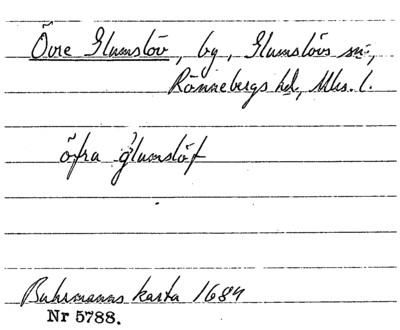 Övre Glumslöv, by, Glumslövs sn,
Rönnebergs hd, Mlm. l.
öfra glumslöf
Buhrmanns karta 1684
Nr 5788.